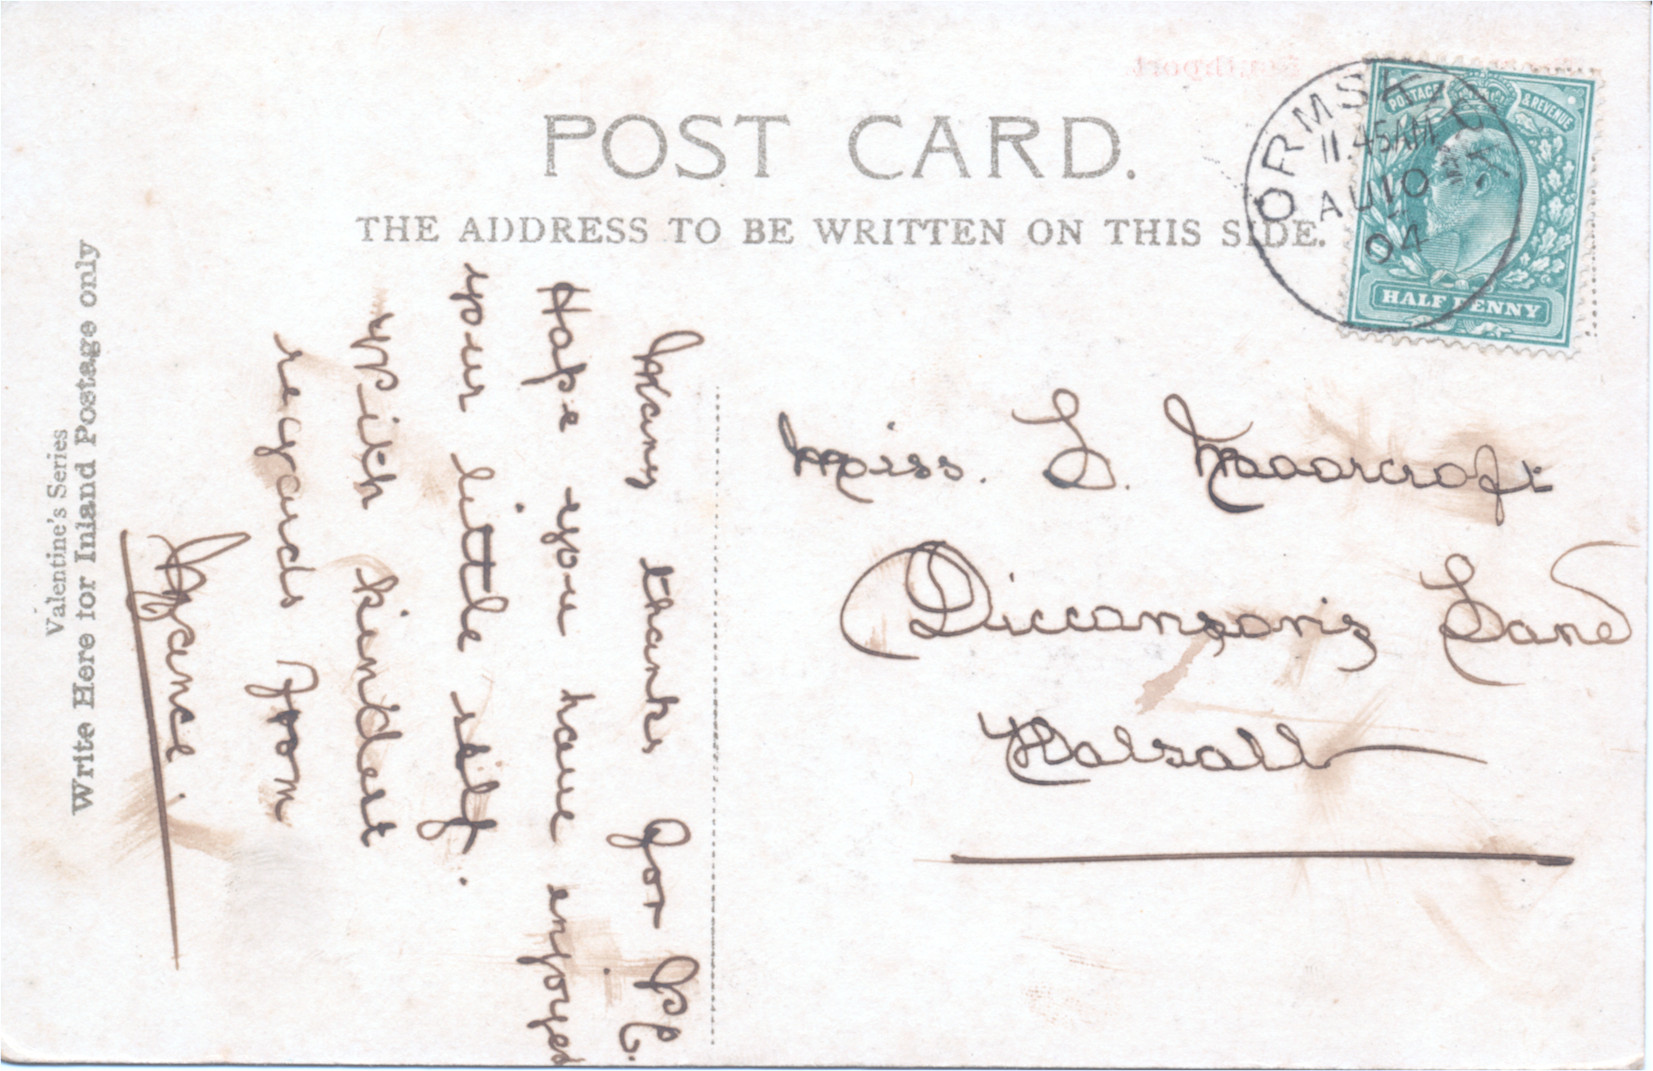 POST CARD.
THE ADDRESS TO BE WRITTEN ON THIS SIDE.
Valentine's Series
Write Here for Inland Postage only
POSTAGE & REVENUE
HALF PENNY
ORMSKIRK
11.45AM
AU 10
04
Many thanks for P.C.
Hope you have enjoyed
your little self.
With kindest
regards from
Miss. L. Moorcroft
Diccanson's Lane
Halsall
Southport.